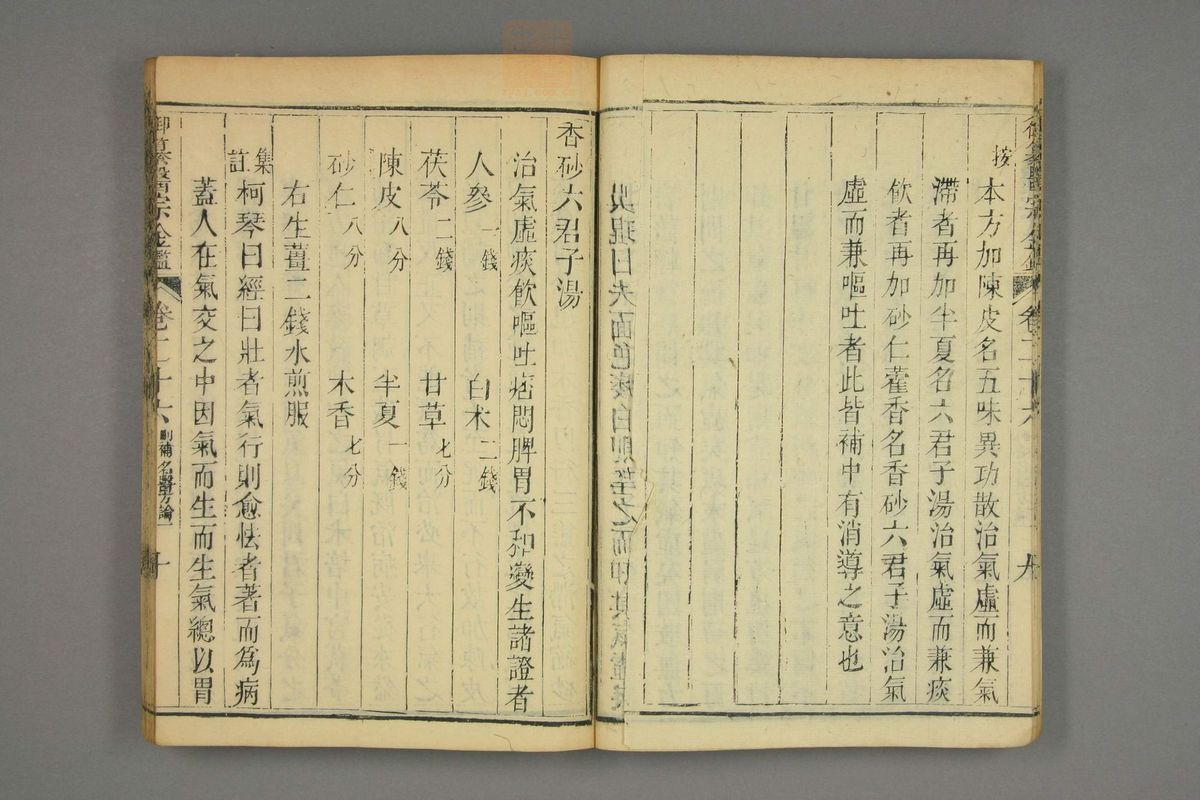 按本方加陳皮名五味異功散治氣虛而兼氣
滯者再加半夏名六君子湯治氣虛而兼痰
飲者再加砂仁藿香名香砂六君子湯治氣
虛而兼嘔吐者此皆補中有消導之意也
吳琨曰夫面色痿白則望之而
香砂六君子湯
治氣虛痰飲嘔吐痞悶脾胃不和變生諸證者
人參一錢 白术二錢
茯苓二錢 甘草七分
陳皮八分 半夏一錢
砂仁八分 木香七分
右生薑二錢水煎服
集註柯琴曰經曰壯者氣行則愈怯者著而為病
蓋人在氣交之中因氣而生而生氣總以胃
御纂醫宗金鑑 卷二十六 刪補名醫方論 十